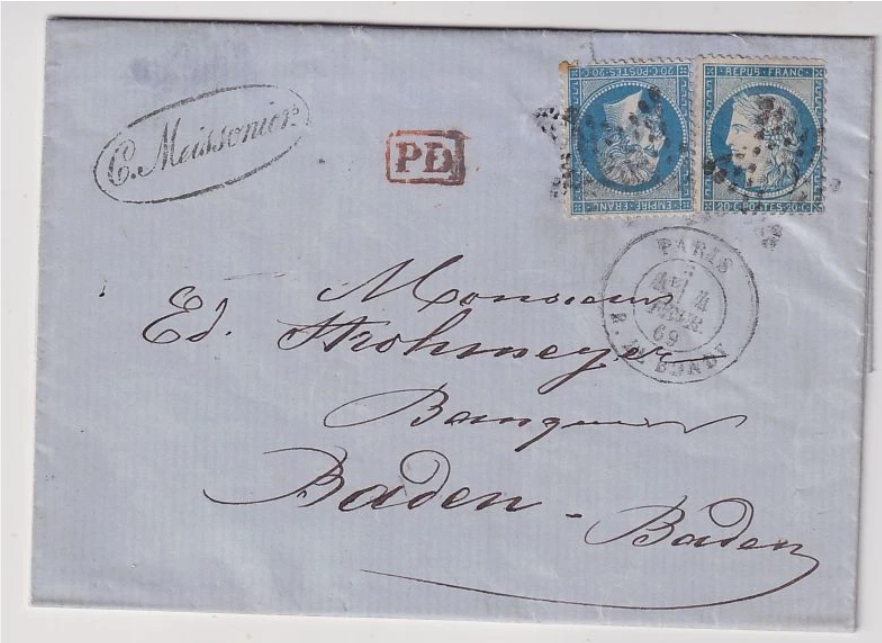 C. Meissonier
PD
20 C. POSTES 20 C
EMPIRE FRANC
REPUB FRANC
20 C POSTES 20 C
PARIS
4
FEVR.
69
R. Bondy
Monsieur
Ed. Strohmeyer
Banquier
Baden - Baden